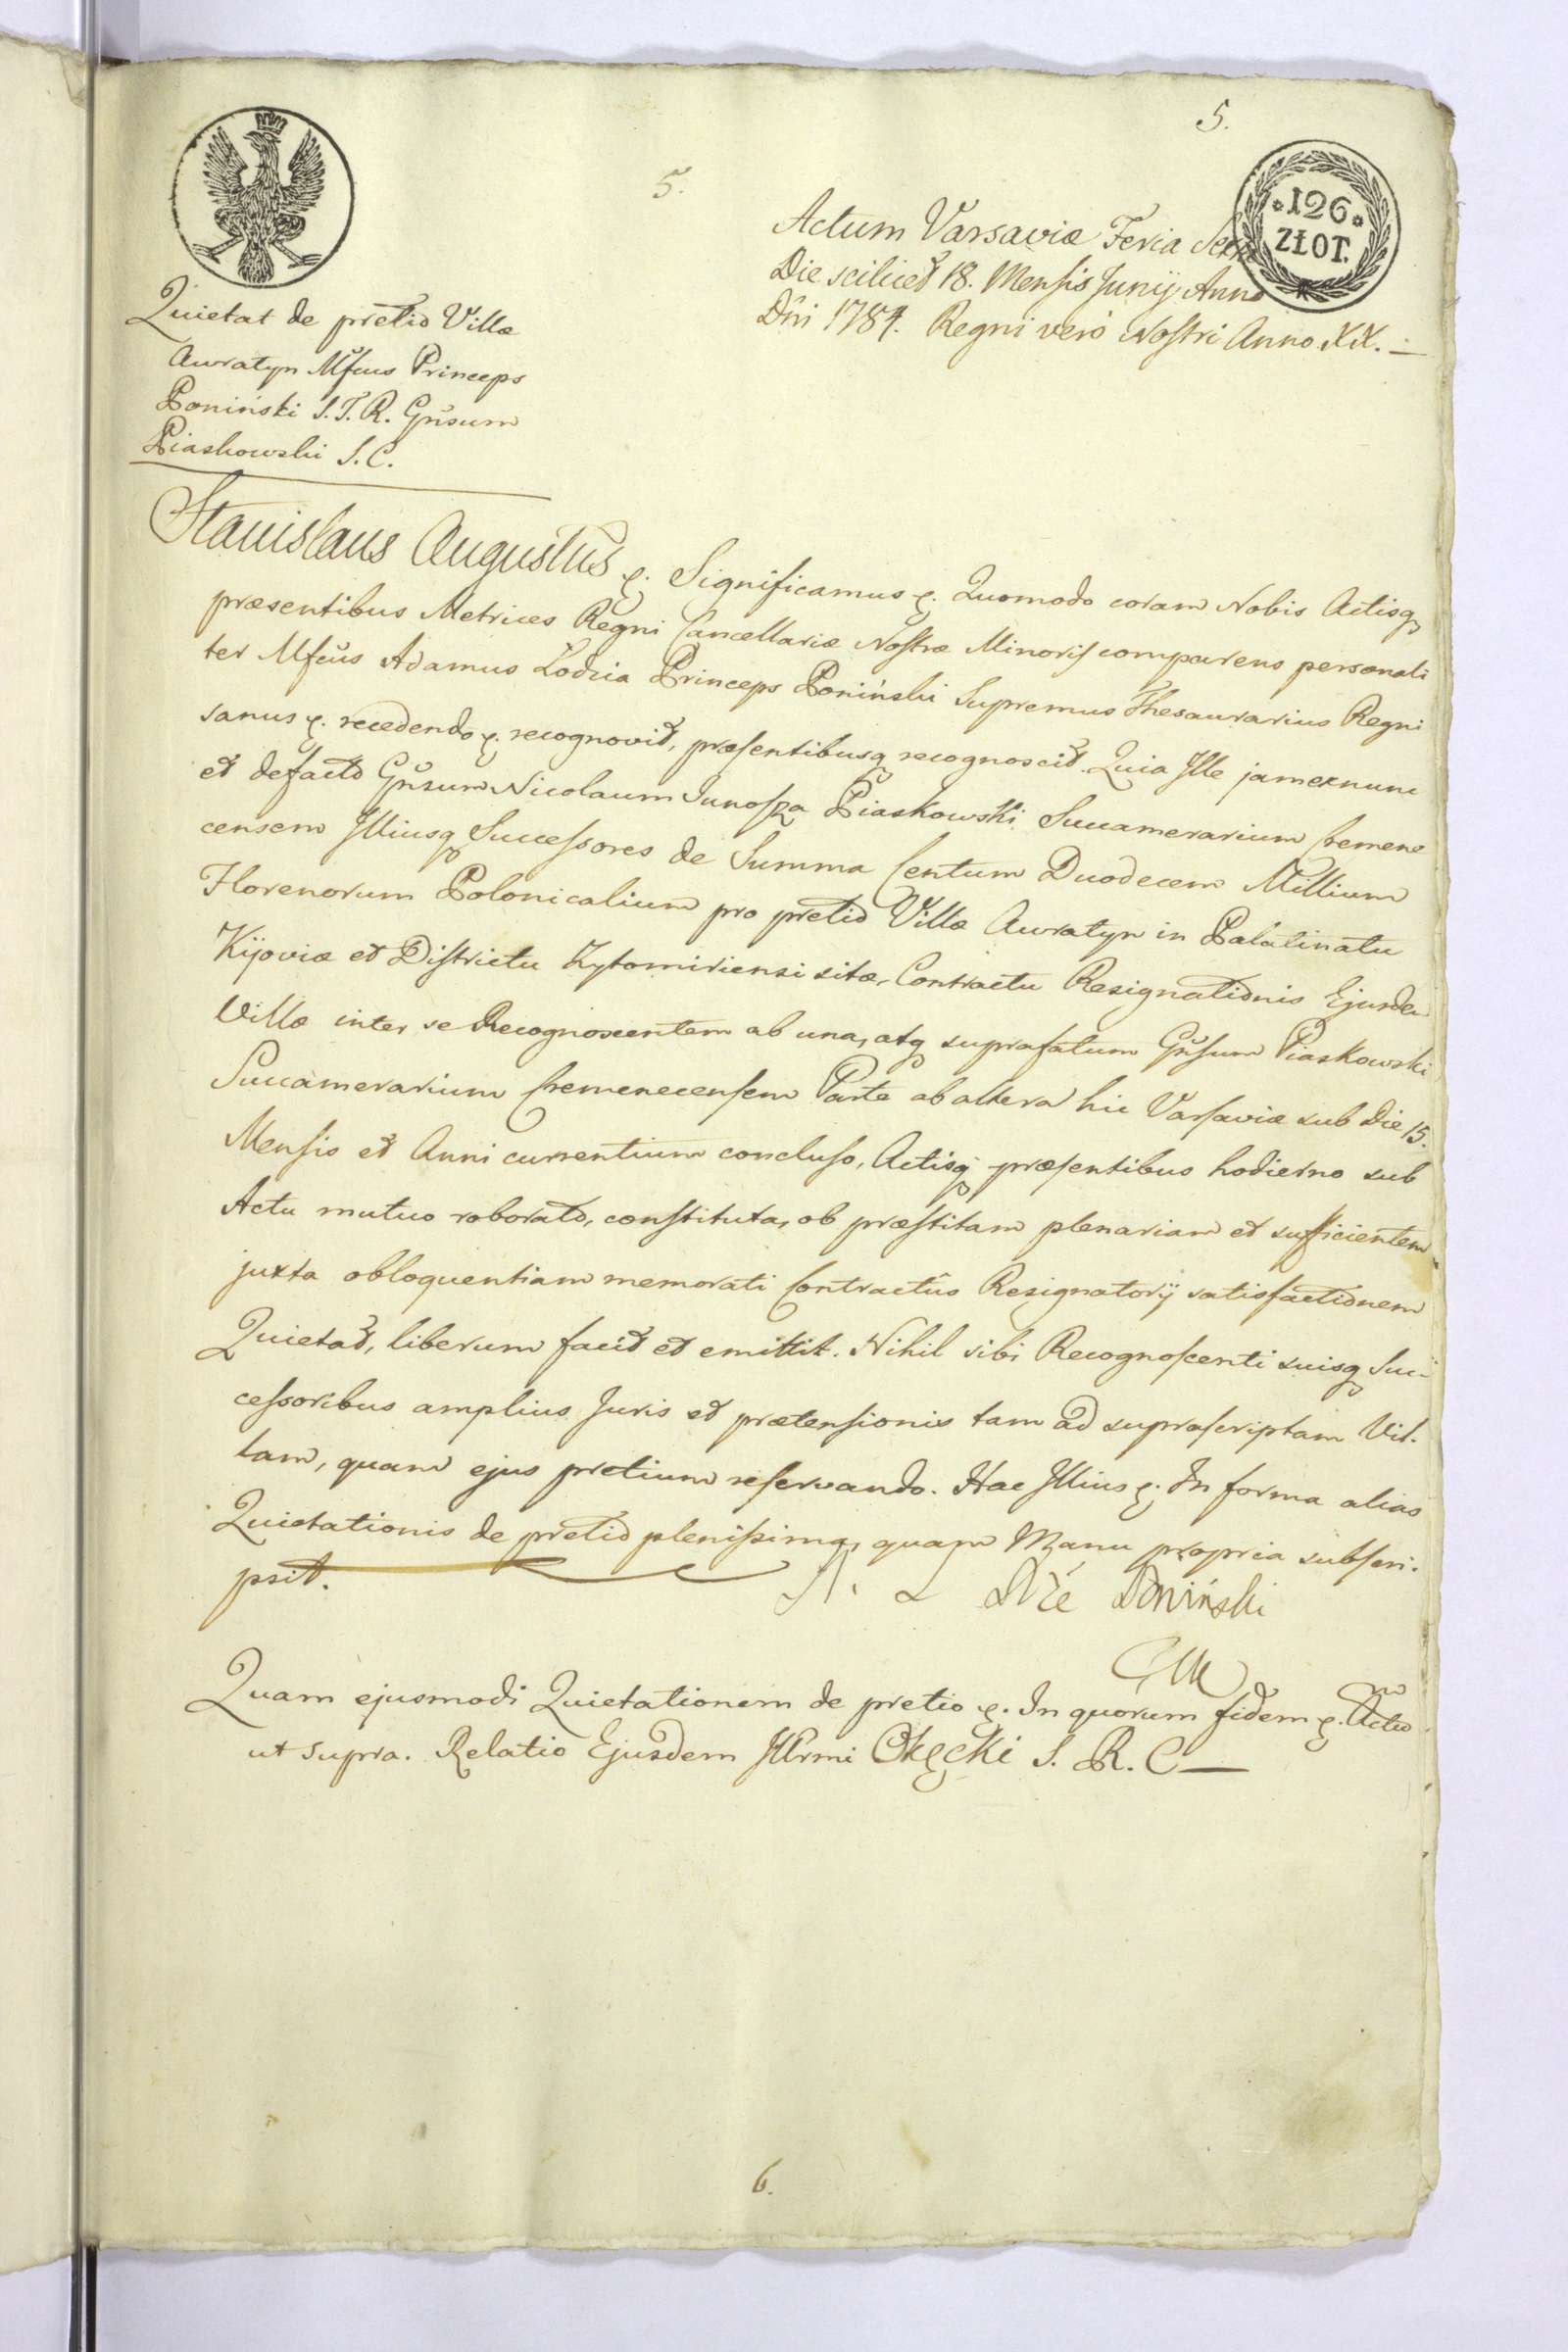 5.
5.
126
ZŁOT.
Actum Varsaviæ Feria
Die scilicet 18. Mensis Junij Anno
Dni 1784. Regni vero Nostri Anno XX.
Quietat de pretio Villæ
Auratyn Mfcus Princeps
Poniński S. T. R. Gnsum
Piaskowski S. C.
Stanislaus Augustus &. Significamus &. Quomodo coram Nobis Actisq
præsentibus Metrices Regni Cancellariæ Nostræ Minoris comparens personali
ter Mfcus Adamus Lodzia Princeps Poniński Supremus Thesaurarius Regni
sanus &. recedendo &. recognovit, præsentibusq recognoscit. Quia Ille jamexnunc
et defacto Gnsum Nicolaum Junosza Piaskowski Succamerarium Cremene
censem Illiusq Successores de Summa Centum Duodecem Millium
Florenorum Polonicalium pro pretio Villæ Auratyn in Palatinatu
Kijoviæ et Districtu Zytomiriensi sitæ, Contractu Resignationis Ejusdem
Villæ inter se Recognoscentem ab una, atq suprafatum Gnsum Piaskowski
Succamerarium Cremenecensem Parte ab altera hic Varsaviæ sub Die 15.
Mensis et Anni currentium concluso, Actisq præsentibus hodierno sub
Actu mutuo roborato, constituta, ob præstitam plenariam et sufficientem
juxta obloquentiam memorati Contractûs Resignatorij satisfactionem
Quietat, liberum facit et emittit. Nihil sibi Recognoscenti suisq Suc-
cessoribus amplius Juris et prætensionis tam ad suprascriptam Vil-
lam, quam ejus pretium reservando. Hac Illius &. In forma alias
Quietationis de pretio plenissima, quam Manu propria subscri-
psit.
A. L Poniński
Quam ejusmodi Quietationem de pretio &. In quorum fidem &. Actum
ut supra. Relatio Ejusdem Illrmi Okęcki S. R. C
6.